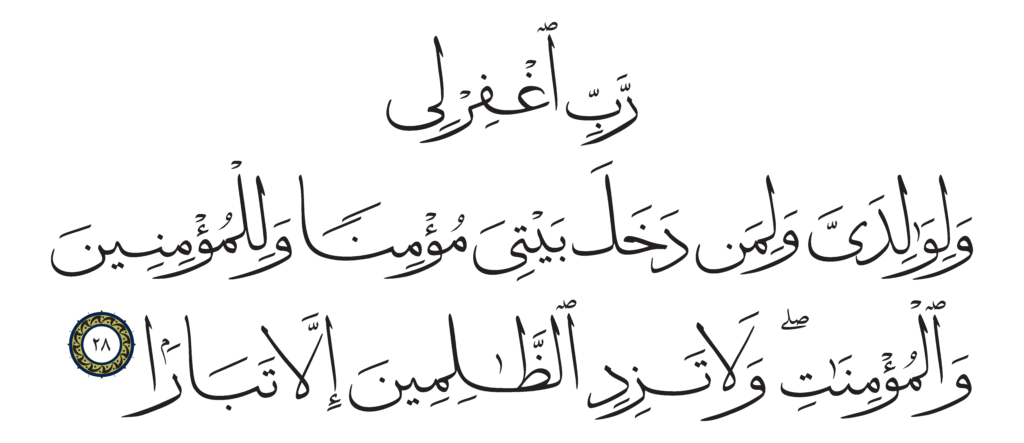 رَّبِّ ٱغْفِرْ لِى
وَلِوَٰلِدَىَّ وَلِمَن دَخَلَ بَيْتِىَ مُؤْمِنًا وَلِلْمُؤْمِنِينَ
وَٱلْمُؤْمِنَٰتِ ۖ وَلَا تَزِدِ ٱلظَّٰلِمِينَ إِلَّا تَبَارًۢا ٢٨